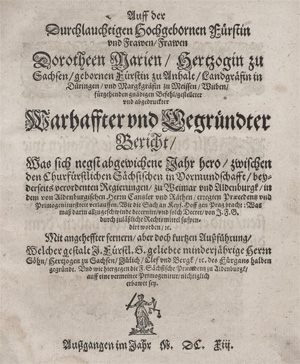 Auff der
Durchlauchtigen Hochgebornen Fürstin
und Frawen/ Frawen
Dorotheen Marien/ Hertzogin zu
Sachsen/ gebornen Fürstin zu Anhalt/ Landgräfin in
Düringen/ und Marggräfin zu Meissen/ Witben/
fürgehenden gnädigen Befehl/ gestelleter
und abgedruckter
Warhaffter und Begründter
Bericht/
Was sich negst abgewichene Jahr hero/ zwischen
den Churfürstlichen Sächsischen in Vormundschafft/ bey-
derseits verordenten Regierungen/ zu Weimar und Aldenburgk/ in
dem von Aldenburgischen Herrn Cantzler und Räthen/ erregten Præcedentz und
Primogeniturstreit verlauffen. Wie die Sach an Keys. Hoff gen Prag bracht: Was
durch zulässliche Rechtsmittel
dirt worden/ etc.
Mit angeheffter fernern/ aber doch kurtzen Außführung/
Welcher gestalt J. Fürstl. G. geliebte minderjährige Herrn
Söhn/ Hertzogen zu Sachsen/ Jülich/ Clef und Bergk/ etc. des Fürgangs halben
gegründt. Und wie hiergegen die F. Sächsische zu Aldenburgk/
auff eine vermeinte Primogenitur/ nichtiglich
erbawet sey.
Außgangen im Jahr M. DC. XIII.